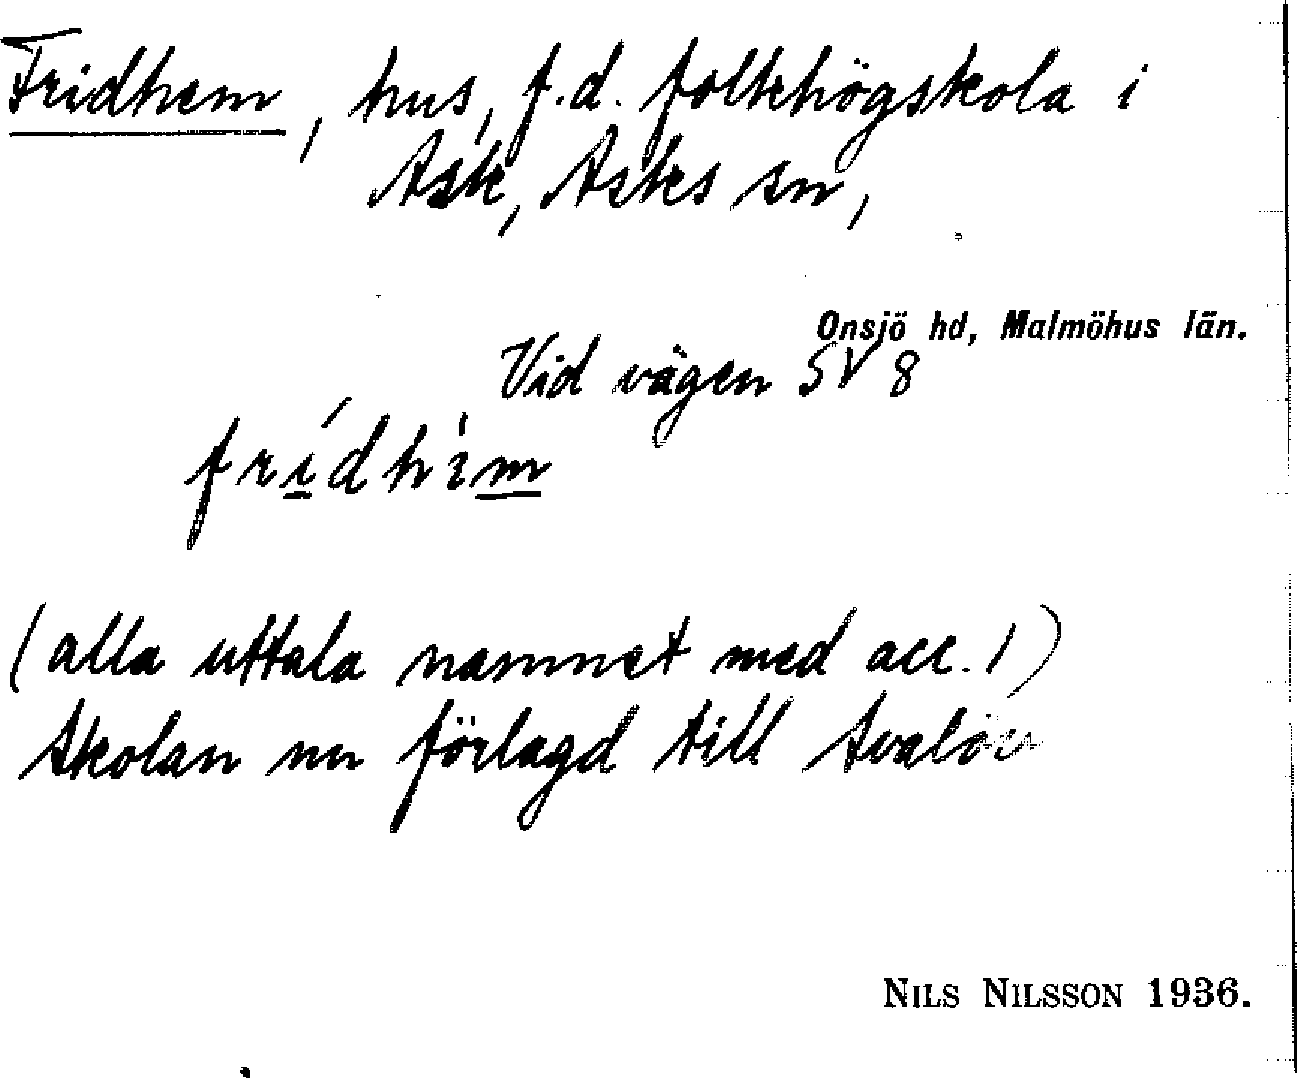 Fridhem, hus, f.d. folkhögskola i
Ask, Asks sn,
Onsjö hd, Malmöhus län.
Vid vägen SV 8
frídhìm
(alla uttala namnet med acc. 1)
Skolan nu förlagd till Svalöv
NILS NILSSON 1936.